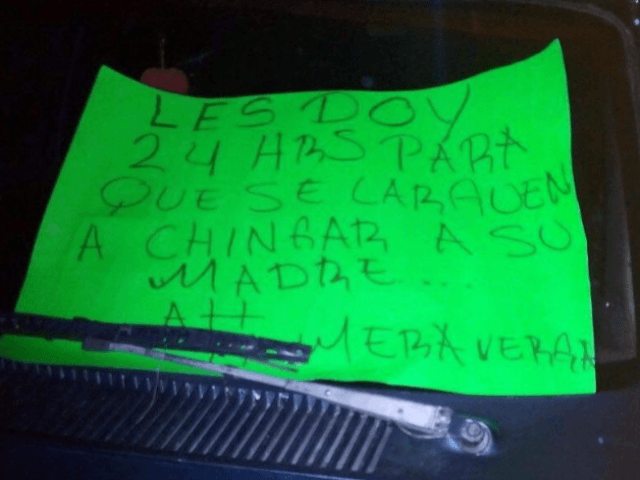 LES DOY
24 HRS PARA
QUE SE LARGUEN
A CHINGAR A SU
MADRE...
ATT
MERA VERGA